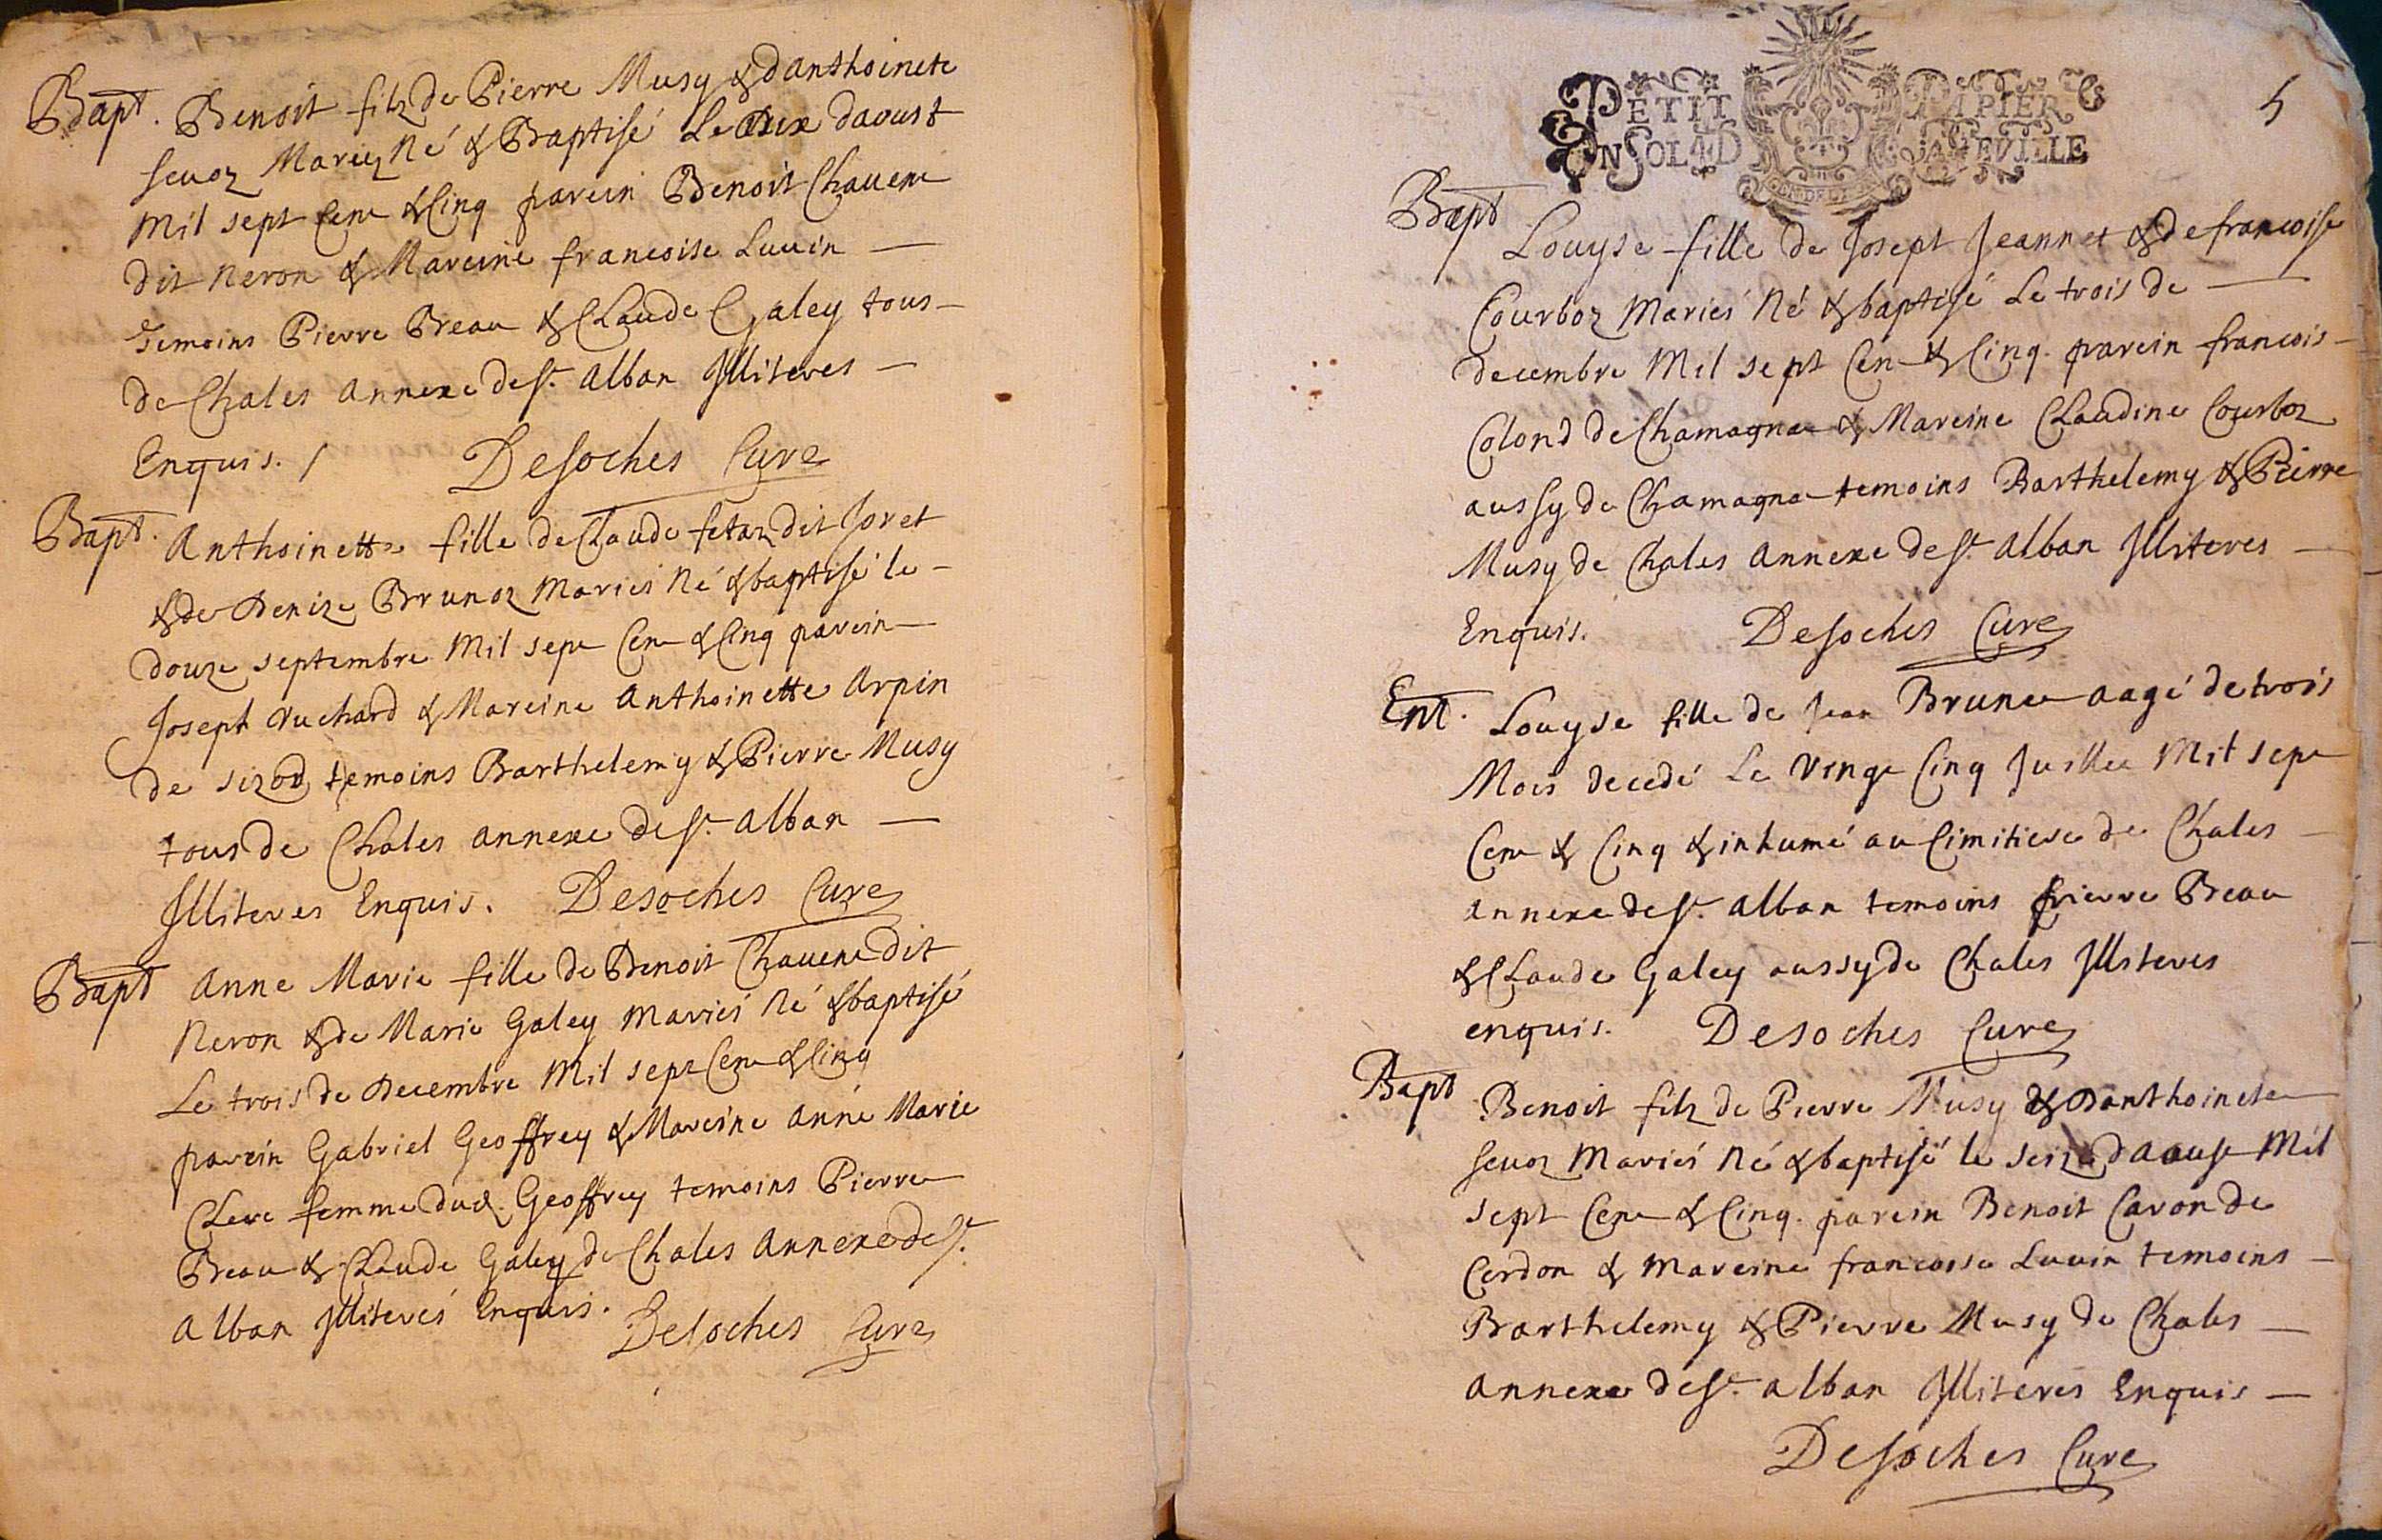 Bapt. Benoit filz de Pierre Musy & danthoinete
sevoz Mariez Né & Baptisé Le dix daoust
Mil sept Cent & Cinq parein Benoit Chavent
dit neron & Mareine francoise Luvin —
Temoins Pierre Breau & Claude Galey tous —
de Chales annexe de St. alban Illiteres —
Enquis. / Desoches Cure
Bapt. Anthoinette fille de Claude fetaz dit Joret
& de Denize Brunoz Mariés Né & baptisé le —
douze septembre Mil sept Cent & Cinq parein —
Joseph vuchard & Mareine Anthoinette Arpin
de sizod temoins Barthelemy & Pierre Musy
tous de Chales annexe de St. alban —
Illiteres Enquis. Desoches Cure
Bapt Anne Marie fille de Benoit Chavent dit
Neron & de Marie Galey Mariés Né & baptisé
Le trois de Decembre Mil sept Cent & Cinq
parein Gabriel Geoffrey & Mareine Anne Marie
Clere femme dud. Geoffrey temoins Pierre
Breau & Claude Galey de Chales Annexe de St.
Alban Illiterés Enquis. Desoches Cure
PETIT PAPIER
UN SOL 4 D LA FEVILLE
5
Bapt Louyse fille de Josept Jeannet & de francoise
Courboz Mariés Né & baptisé Le trois de —
decembre Mil sept Cen & Cinq. parein francois —
Colond de Chamagna & Mareine Claudine Courboz
aussy de Chamagna temoins Barthelemy & Pierre
Musy de Chales Annexe de St. Alban Illiteres —
Enquis. Desoches Cure
Ent. Louyse fille de Jean Brunet aagé de trois
Mois decedé Le vingt Cinq Juillet Mil sept
Cent & Cinq & inhumé au Cimitiere de Chales —
annexe de St. alban temoins pierre Breau
& Claude Galey aussy de Chales Illiteres
enquis. Desoches Cure
Bapt Benoit filz de Pierre Musy & Danthoinete
sevoz Mariés Né & baptisé le seize daoust Mil
sept Cent & Cinq. parein Benoit Cavon de
Cerdon & mareine francoise Luvin temoins —
Barthelemy & Pierre Musy de Chales —
annexe de St. alban Illiteres Enquis —
Desoches Cure